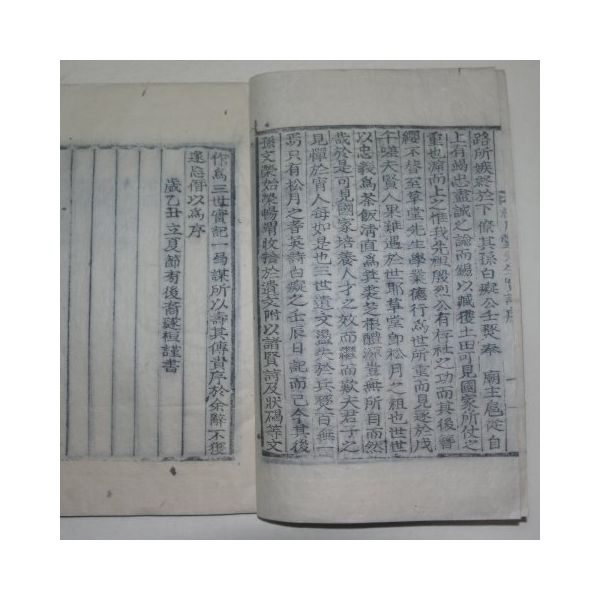 路所嫉終於下僚其孫白癡公壬聚奉 廟主扈從自
上有竭忠盡誠之諭而錫以臧獲土田可見國家所仗之
重也溯而上之惟我先祖殷列公有存社之功而其後簪
纓不墜至草堂先生學業德行爲世所重而見逐於戊
午嗟大賢人果難遇於世耶草堂卽松月之祖也世世
以忠義爲茶飯淸直爲箕裘之根醴源豈無所自而然
哉於是可見國家培養人才之效而繼而歎夫君子之
見憚於宵人每如是也三世遺文盪失於兵燹百無一
焉只有松月之耆英詩白癡之壬辰日記而已今其後
孫文 始 暢 收拾於遺文附以諸賢詩及狀碣等文
作爲三世實記一局謀所以壽其傳責序於余辭不獲
遂忘僭以爲序
歲乙丑立夏節 後裔 桓謹書